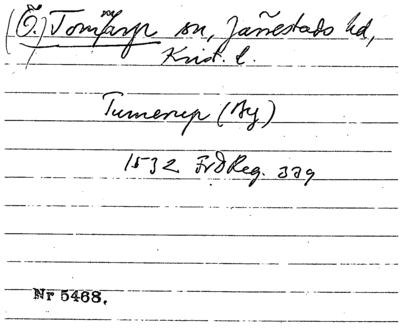 (Ö.) Tommarp sn, Järrestads hd,
Krist. l.
Tumerup (By)
1532 FrdReg. 339
Nr 5468.